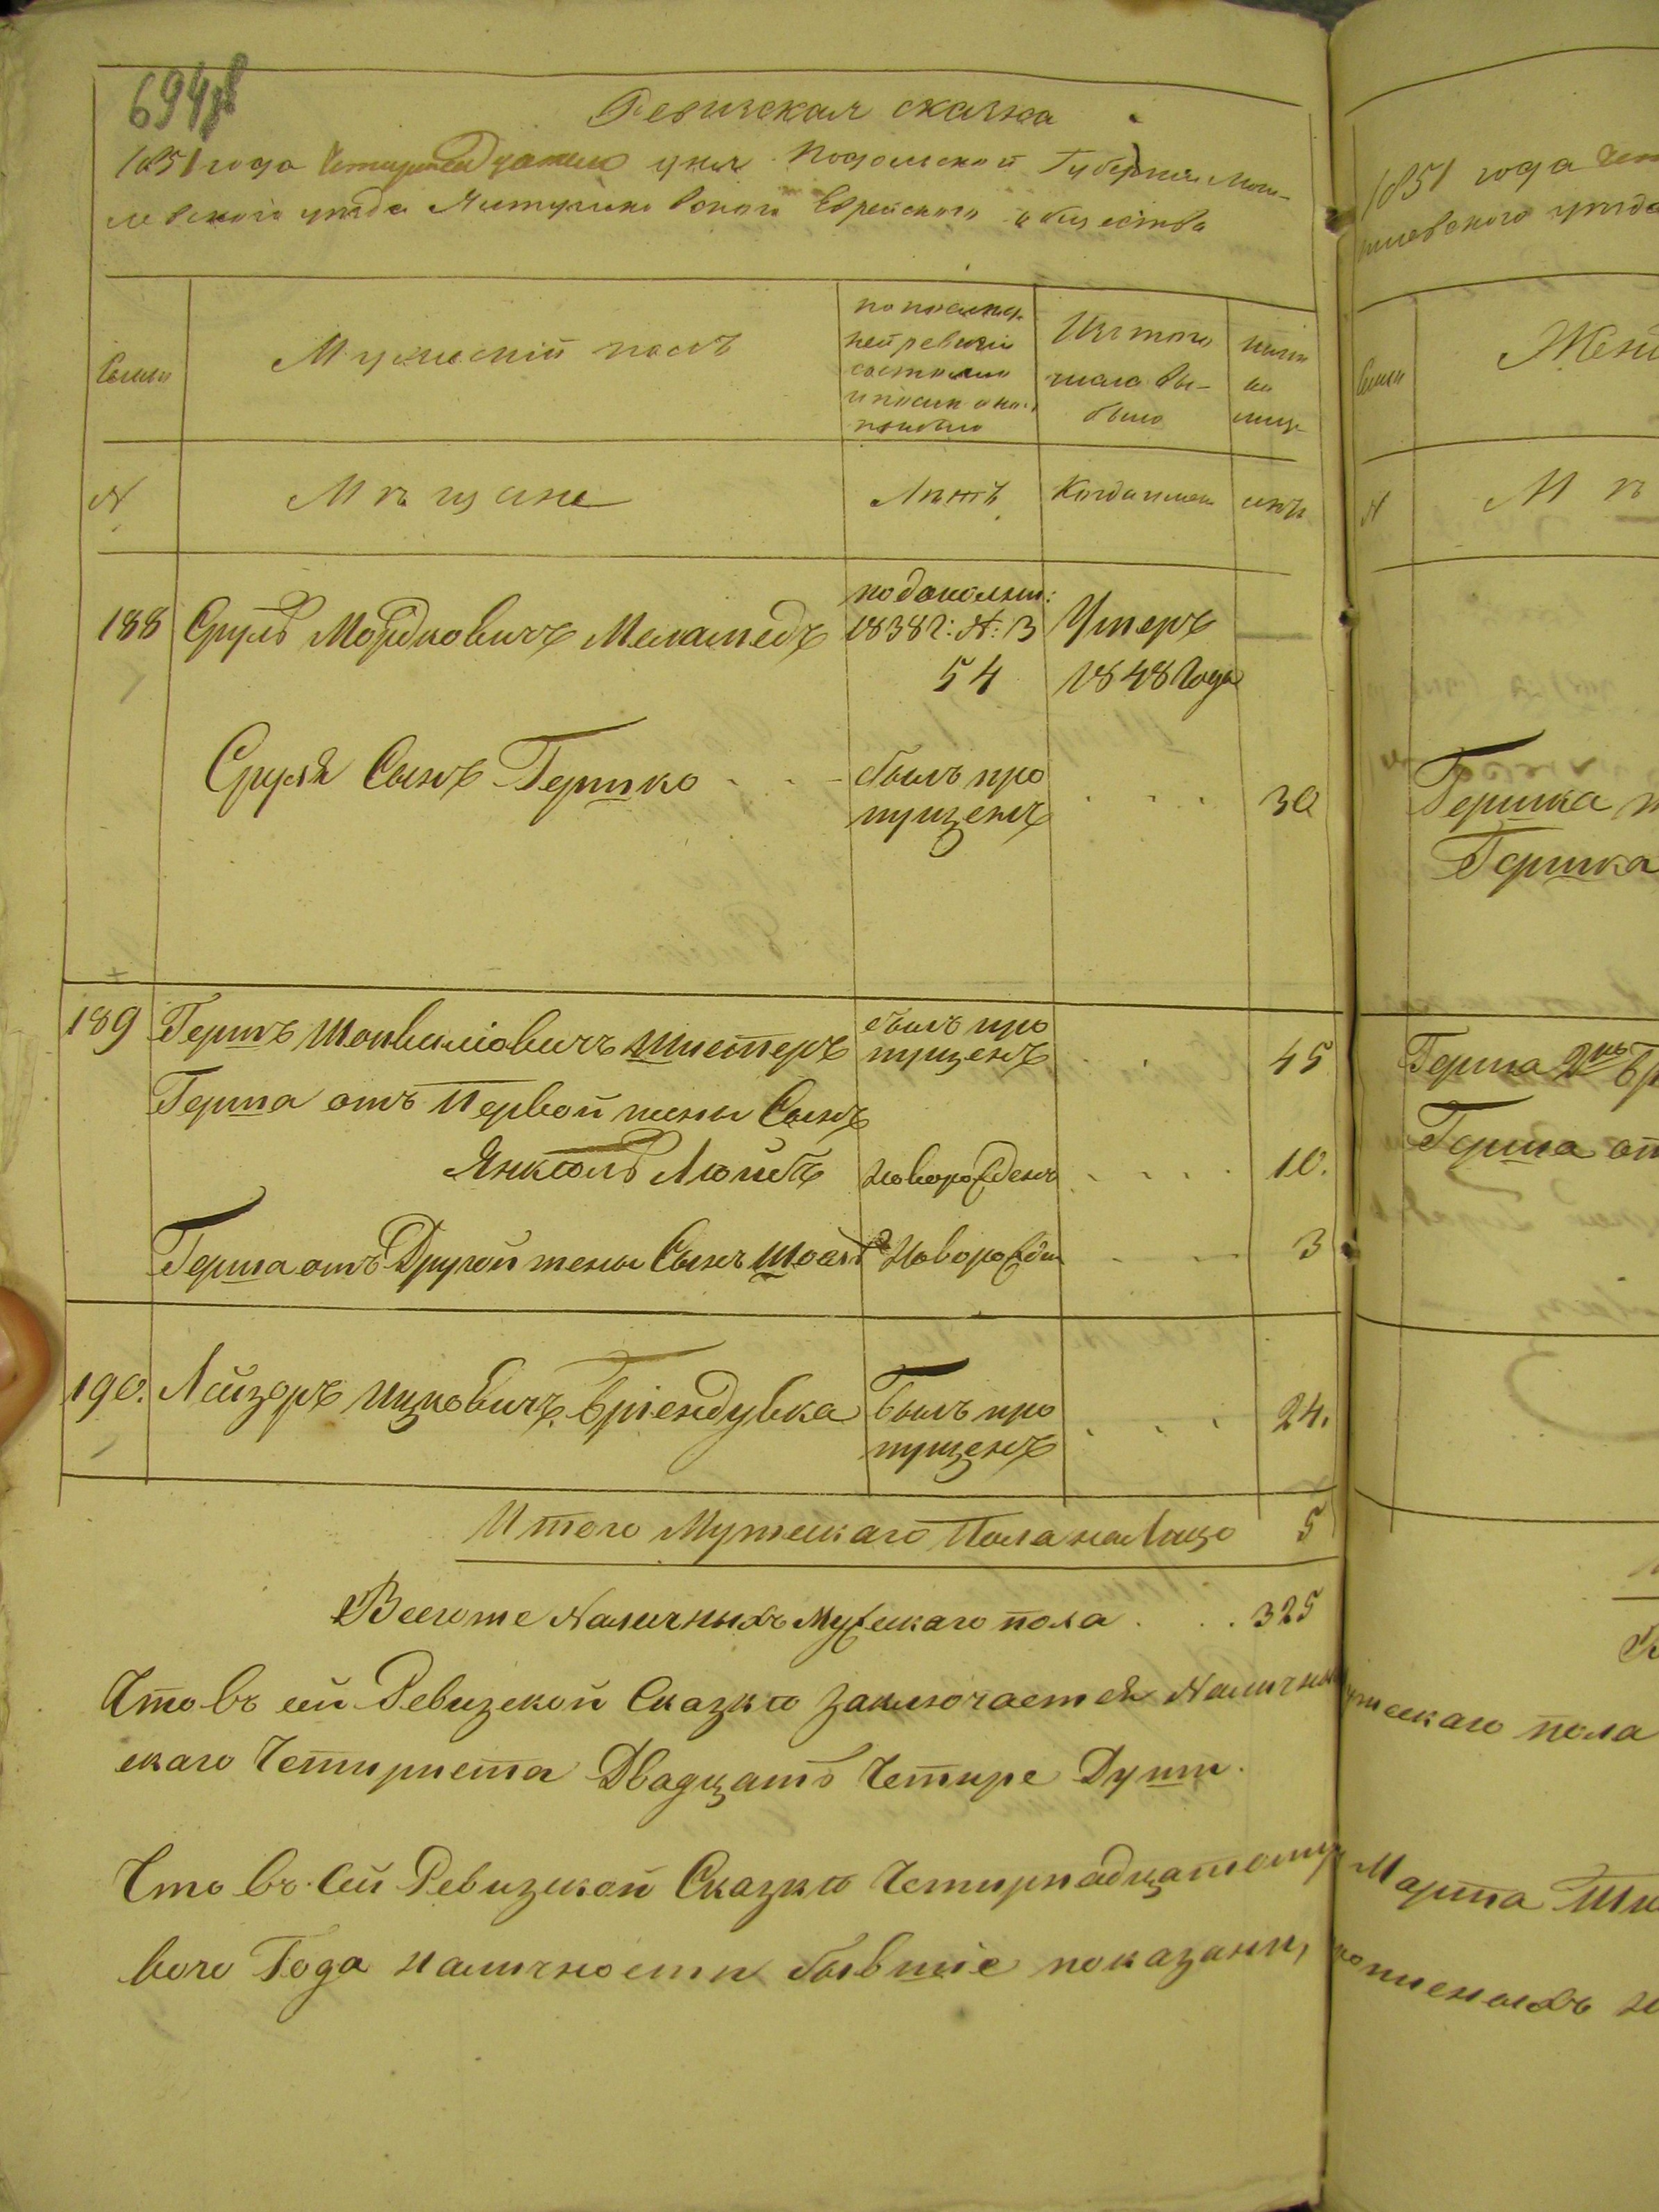 694об
Ревизская сказка
1851 года Четырнадцатаго дня Подольской Губернии Моги-
левскаго уезда Еврейского общества
Семьи
Мужеский полъ
по послед-
ней ревизии
состояло
и после оной
прибыло
Изъ того
числа вы-
было
ныне
на
лице
№
Мещане
Летъ
Когда именно
летъ
188 Сруль Мордковичъ Меламедъ
по дополнит:
1838 г: №: 13
54
Умеръ
1848 Года
Сруля Сынъ Гершко
былъ про
пущенъ
30
Гершка
Гершка
189 Гершъ Шонвиліовичъ Шпетеръ былъ про
пущенъ
45
Герша отъ Первой жены Сынъ
Янкель Лейбъ новорожденъ 10.
Герша отъ Другой жены Сынъ новорожден 3
190. Лейзоръ Ицковичъ Бріендувка
былъ про
пущенъ
24.
Итого Мужескаго Пола на Лицо 5
Всего же Наличныхъ Мужескаго пола . . . 325
Что въ сей Ревизской Сказке заключается Наличных мужескаго пола
скаго Четыриста Двадцать Четыре Душ.
Что въ Сей Ревизской Сказке Четырнадцатому Марта
вого Года наличности бывшие показани,
1851 года
Жен
Семьи
№
Герша
Герша от